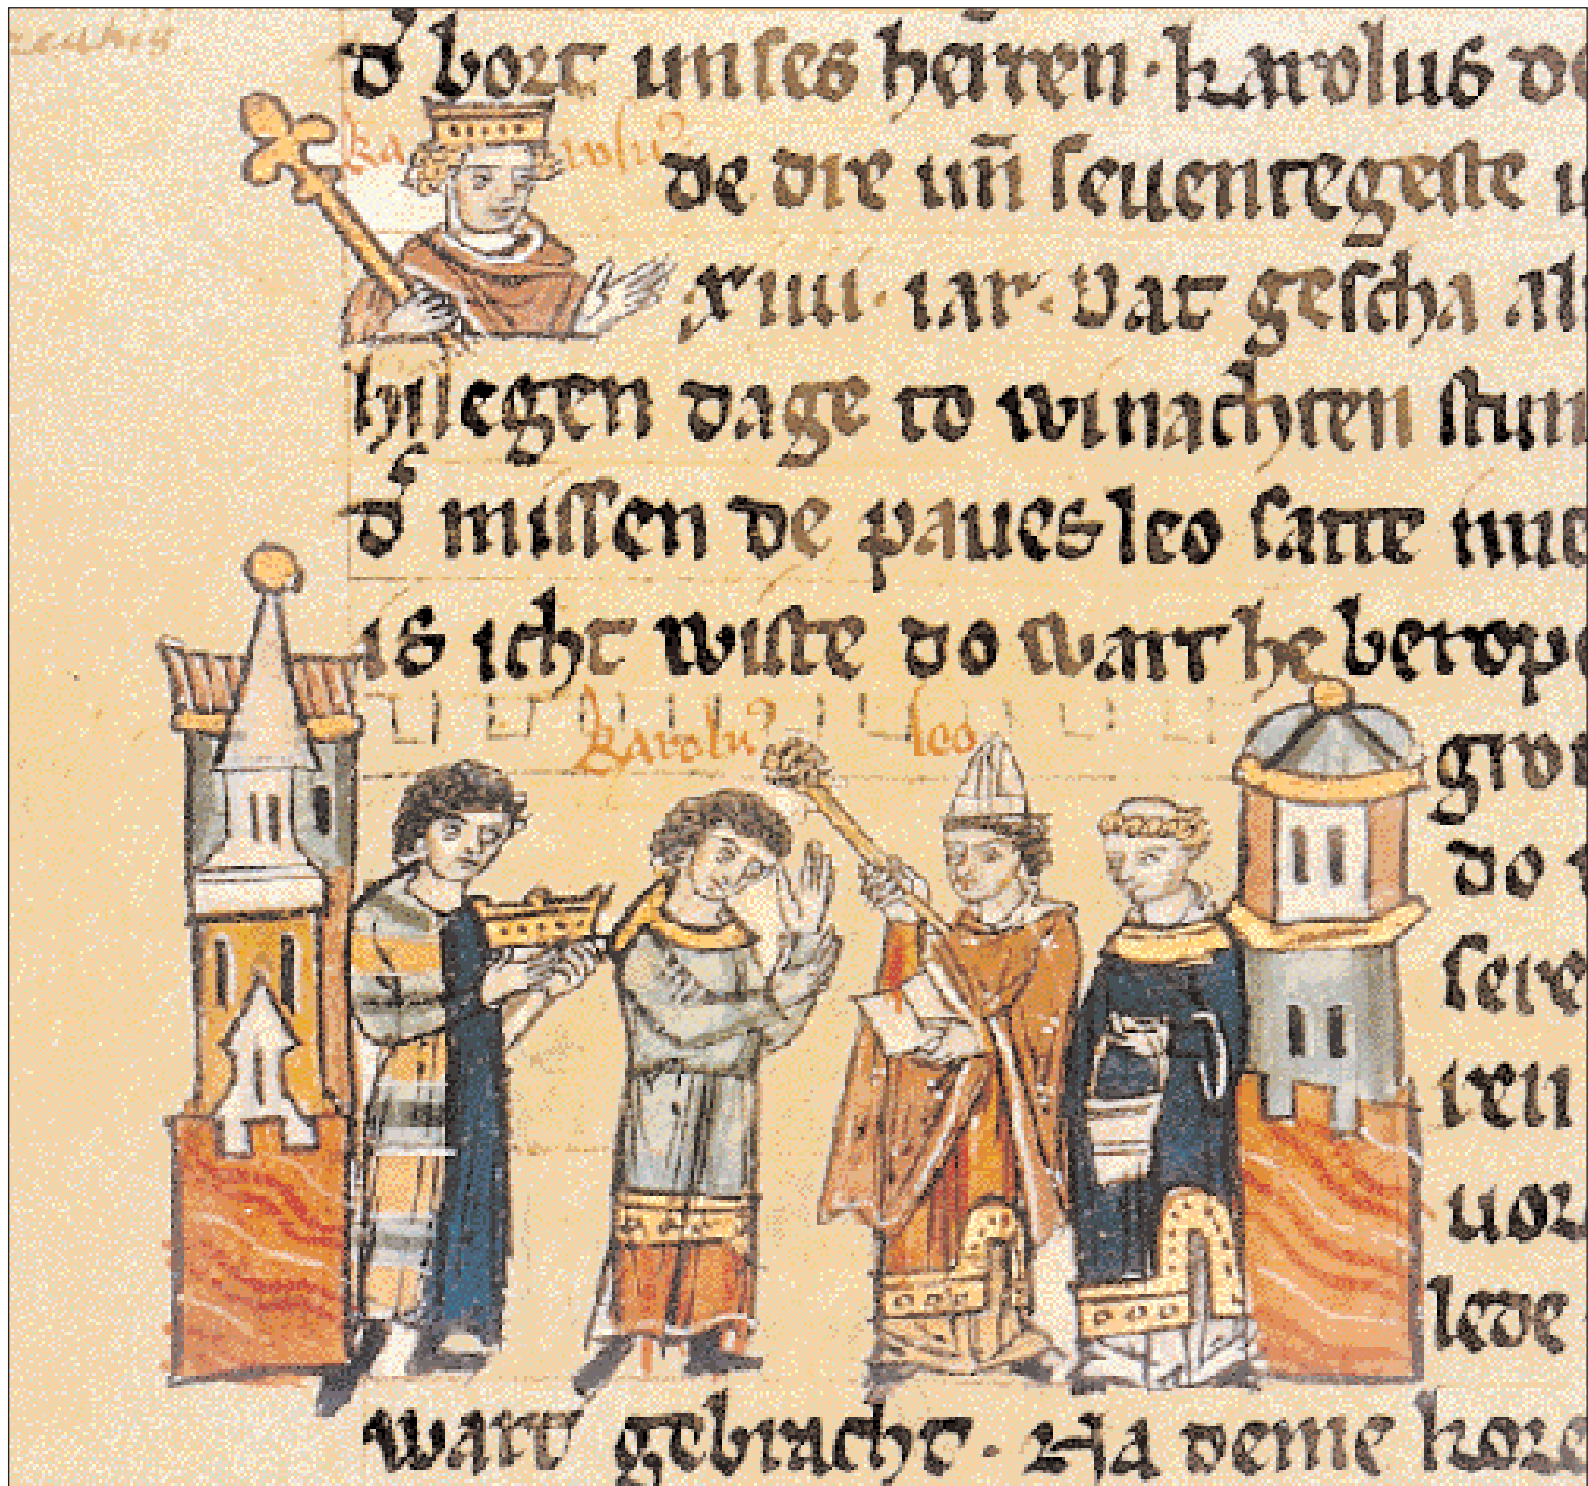 d' bort unses herren · karolus de
ka rolu'
de dre un̄ seuentegeste
xiiii · iar · Dat gescha al
hilegen dage to winachten stun
d' missen de paues leo satte
is icht wiste do wart he berope
karolu' leo
gro
do
sere
iren
uor
lede
wart gebracht · Na deme kore